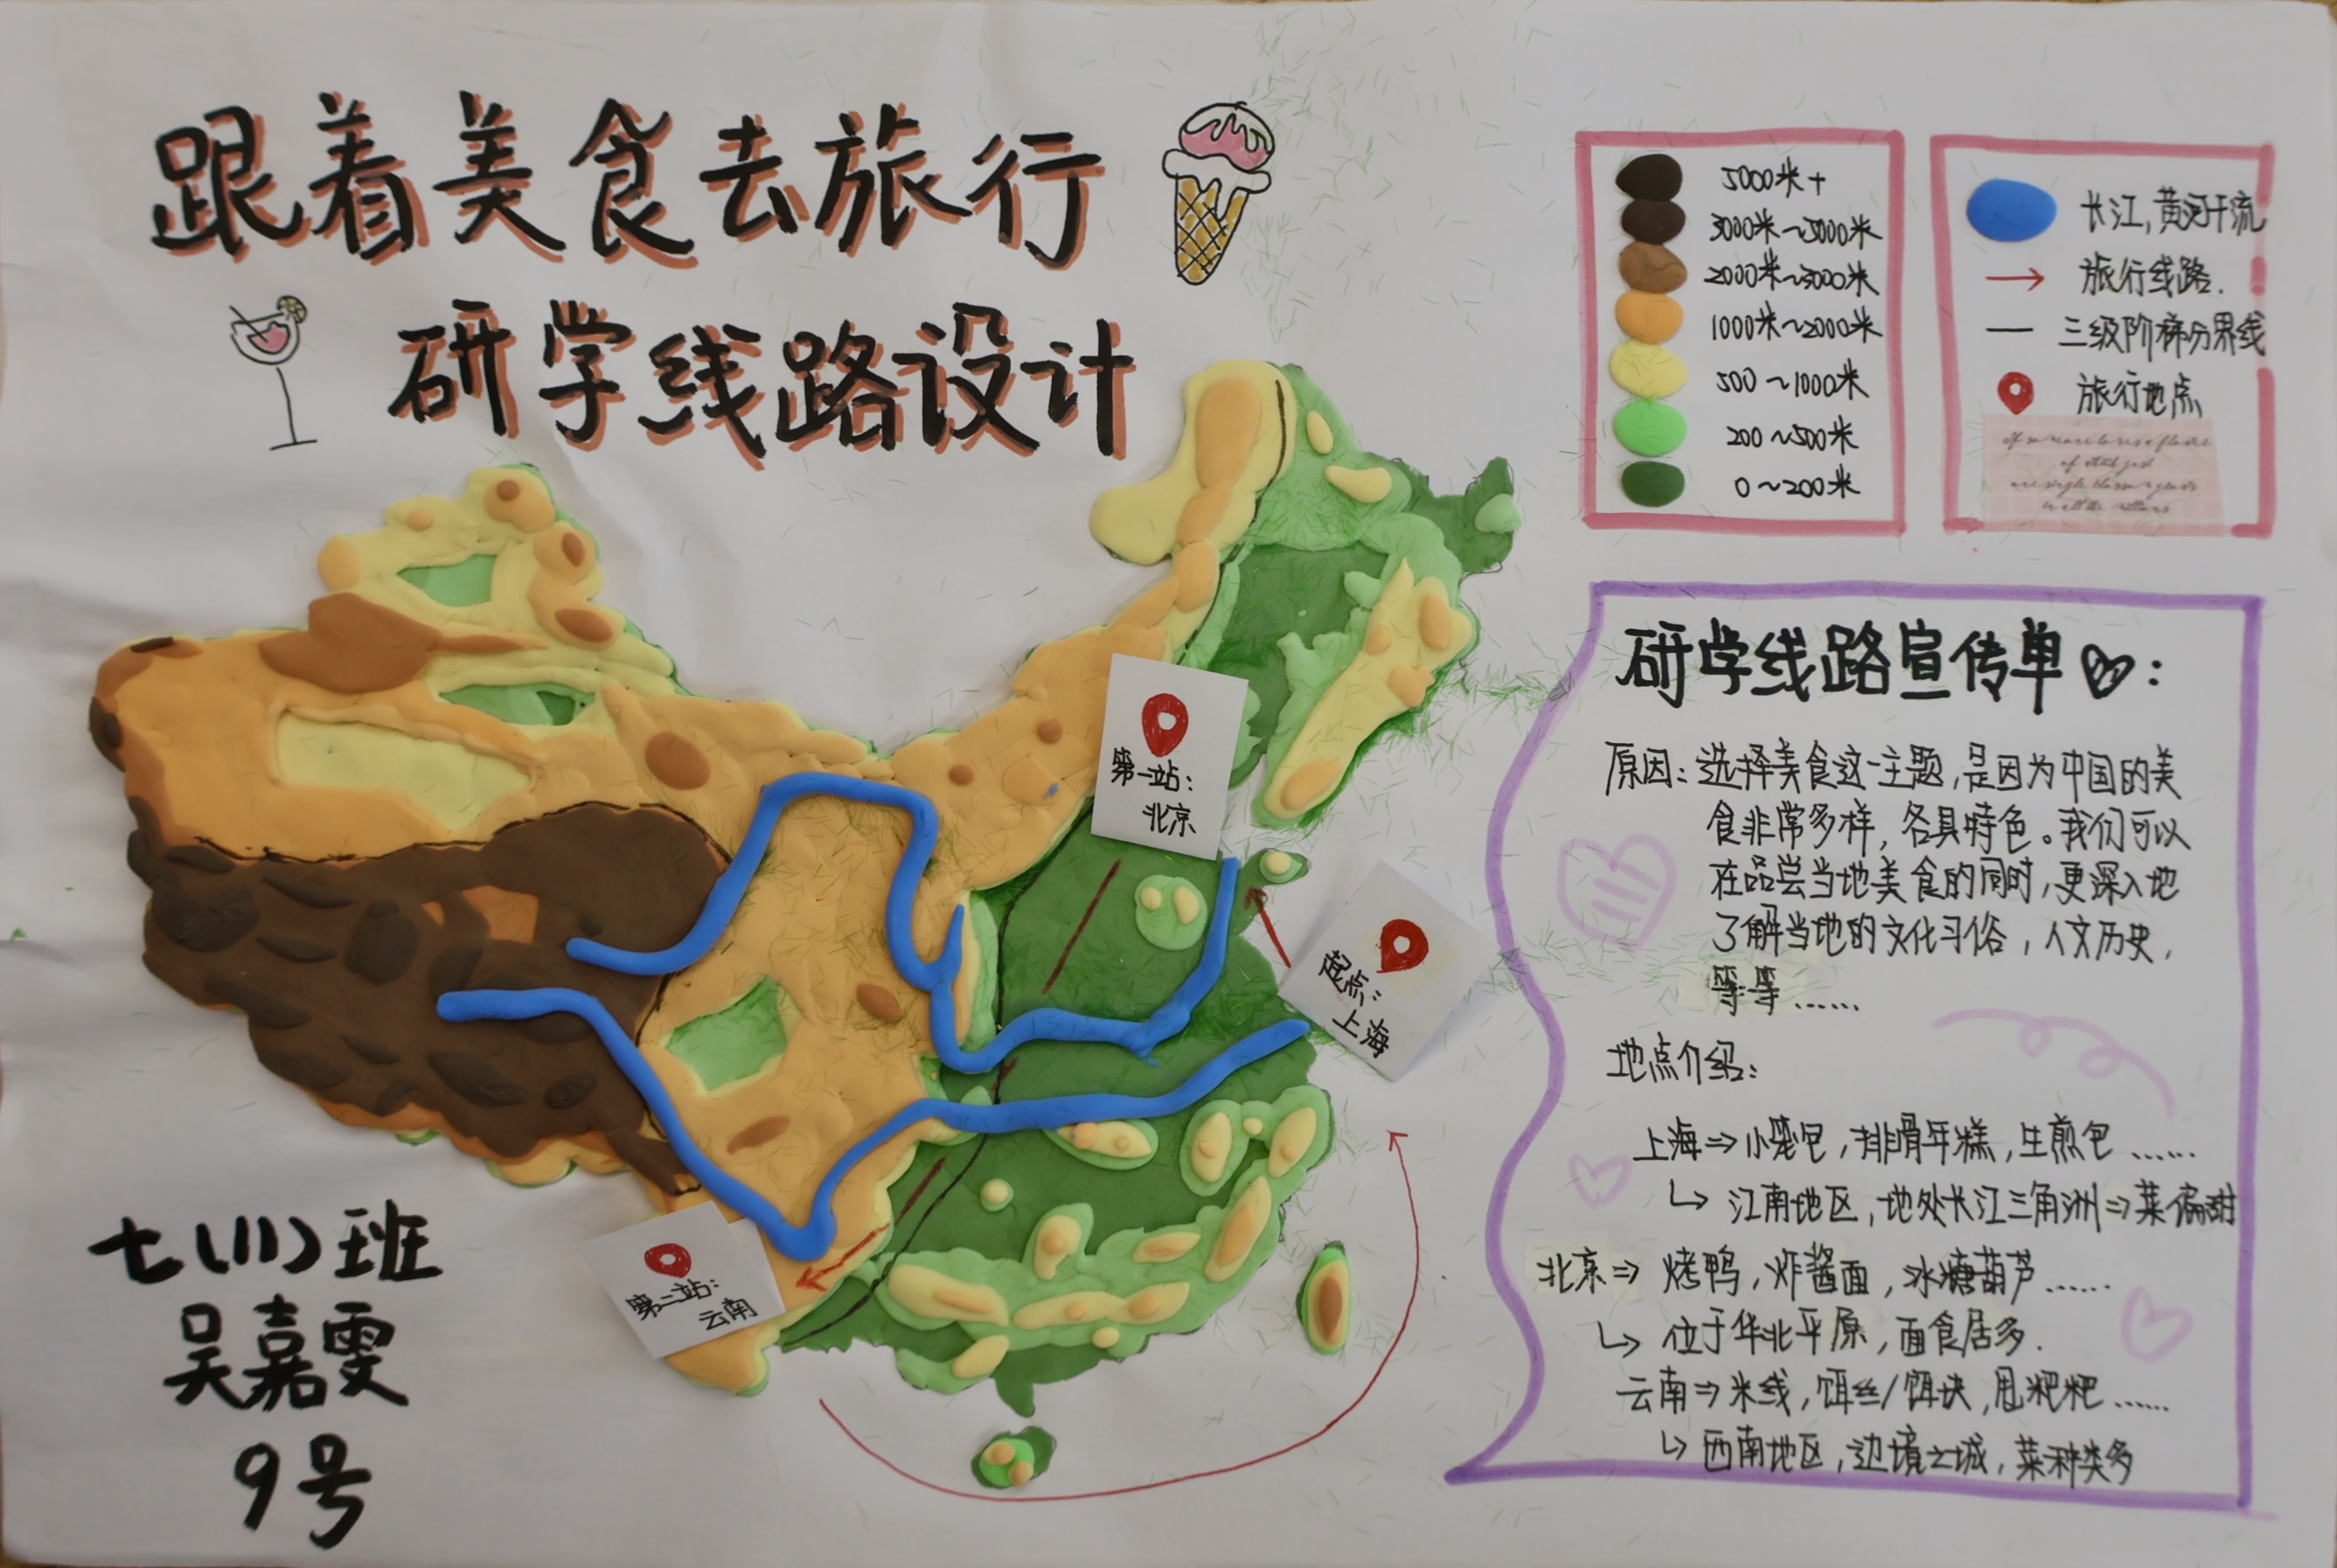 跟着美食去旅行
研学线路设计
5000米+
3000米~5000米
2000米~3000米
1000米~2000米
500~1000米
200~500米
0~200米
长江,黄河干流
旅行线路.
三级阶梯分界线
旅行地点
第一站:
北京
起点:
上海
第二站:
云南
七(11)班
吴嘉雯
9号
研学线路宣传单:
原因:选择美食这一主题,是因为中国的美
食非常多样,各具特色。我们可以
在品尝当地美食的同时,更深入地
了解当地的文化习俗,人文历史,
等等……
地点介绍:
上海⇒小笼包,排骨年糕,生煎包……
↳江南地区,地处长江三角洲⇒菜偏甜
北京⇒烤鸭,炸酱面,冰糖葫芦……
↳位于华北平原,面食居多.
云南⇒米线,饵丝/饵块,甩粑粑……
↳西南地区,边境之城,菜种类多